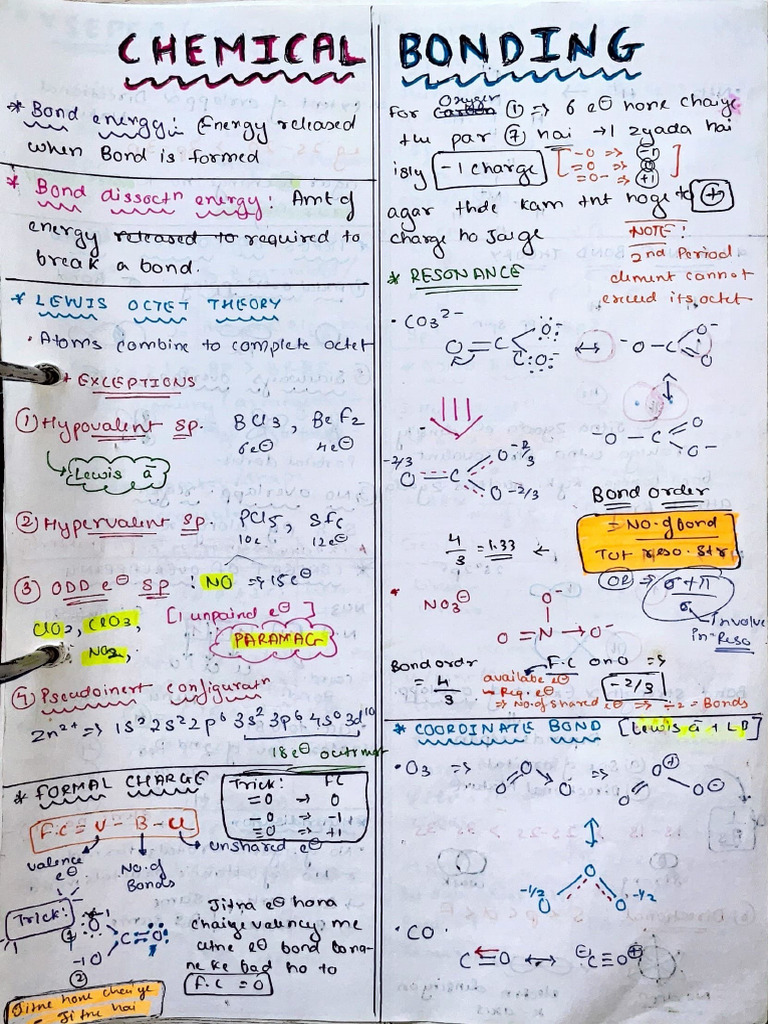 CHEMICAL BONDING
* Bond energy: Energy released
when Bond is formed
* Bond dissoctn energy: Amt of
energy released to required to
break a bond.
* LEWIS OCTET THEORY
• Atoms combine to complete octet
* EXCEPTIONS
① Hypovalent sp. BCl3, BeF2
6e⊖ 4e⊖
Lewis ā
② Hypervalent sp. PCl5, SF6
10e⊖ 12e⊖
③ ODD e⊖ SP: NO ⇒ 15e⊖
ClO2, ClO3, [1 unpaired e⊖]
NO2, PARAMAG
④ Pseudoinert configuratn
Zn2+ ⇒ 1s2 2s2 2p6 3s2 3p6 4s0 3d10
18e⊖ outrmost
* FORMAL CHARGE
Trick: FC
=O → 0
-O → -1
≡O → +1
F.C = V - B - U
valence e⊖
No. of Bonds
unshared e⊖
Trick:
① O -1
C=O
-1O
②
Jitna e⊖ hona
chaiye valency me
utne e⊖ bond bana-
ne ke bad ho to
F.C = 0
Jitne hone chaiye
- Jitne hai
For Carbon Oxygen ① ⇒ 6 e⊖ hone chaiye
the par ⑦ hai → 1 zyada hai
isly -1 charge
-O ⇒ -1
=O ⇒ 0
≡O- ⇒ +1
agar thde kam tnt hoge to +
charge ho Jaige
NOTE!
2nd Period
element cannot
exceed its octet
* RESONANCE
• CO3 2-
O=C O: O⊖ ↔ -O-C O- O
-O-C O O-
-2/3 O C O-2/3 O-2/3
Bond order
= No. of bond
Tot reso. str
4/3 = 1.33 ←
OR ⇒ σ+π
σ
involve
in Reso
• NO3⊖
O-
O=N→O-
Bond ordr
= 4/3
F.C on O ⇒
-2/3
availabe e⊖
- Req. e⊖
⇒ No. of shared e⊖ ⇒ ÷2 = Bonds
* COORDINATE BOND [Lewis ā + LB]
• O3 ⇒ O O O ⇒ O O⊕ O⊖
-1/2 O O O -1/2
• CO
C≡O ↔ ⊖C≡O⊕